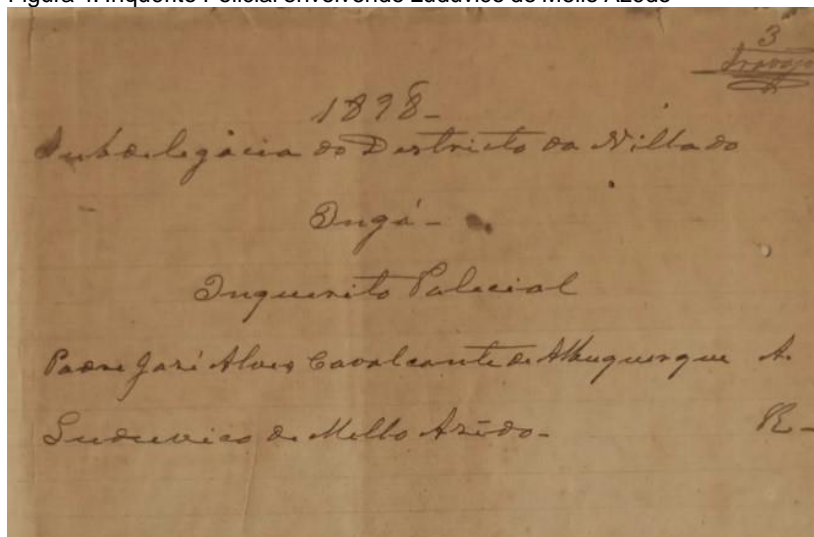 Figura 4: Inquérito Policial envolvendo Luduvico de Mello Azêdo
3
1898-
Subdelegácia do Destricto da Villa do
Ingá-
Inquerito Polecial
Padre José Alves Cavalcante de Albuquerque A.
Luduvico de Mello Azêdo- R-